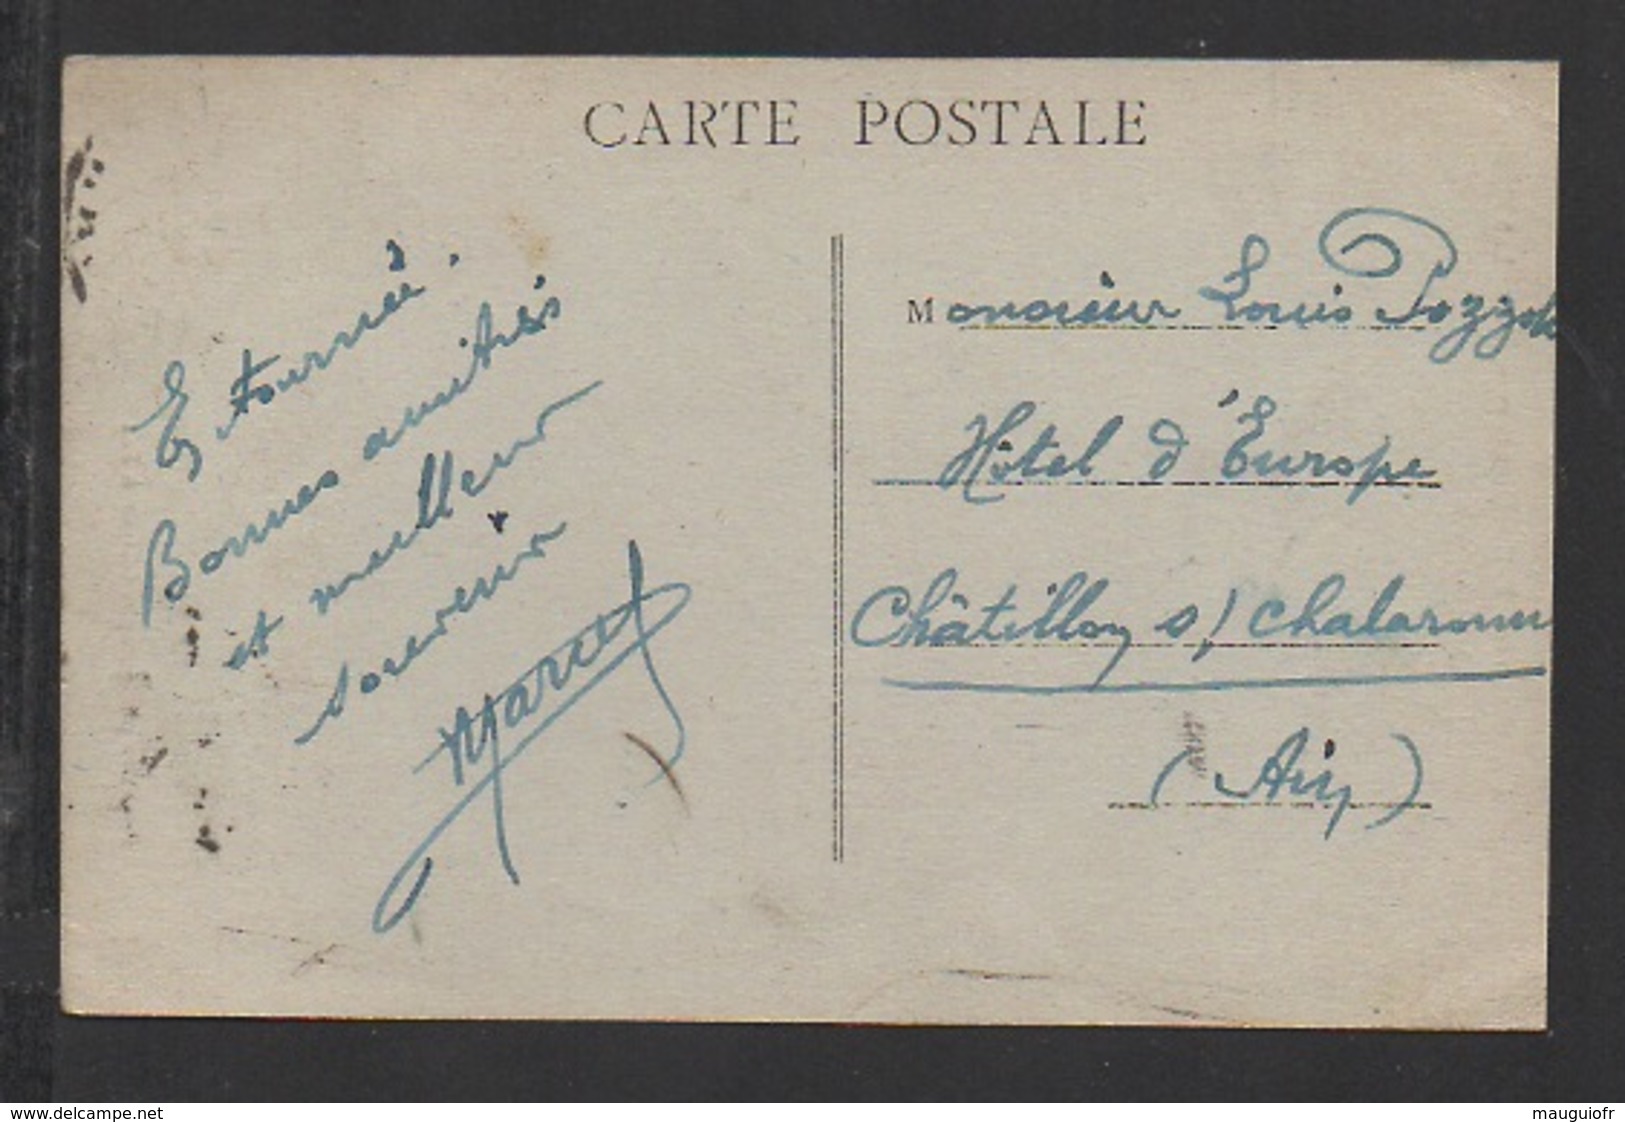 CARTE POSTALE
En tournée.
Bonnes amitiés
et meilleur
souvenir
Marcel
Monsieur Louis
Hôtel d'Europe
Châtillon s/ Chalaronne
(Ain)
www.delcampe.net
mauguiofr